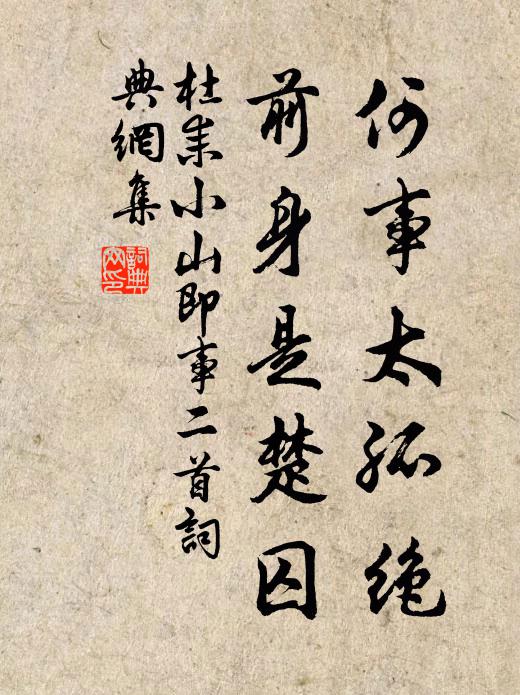 何事太孤绝
前身是楚囚
杜耒小山即事二首詞
典網集
詞典
网印